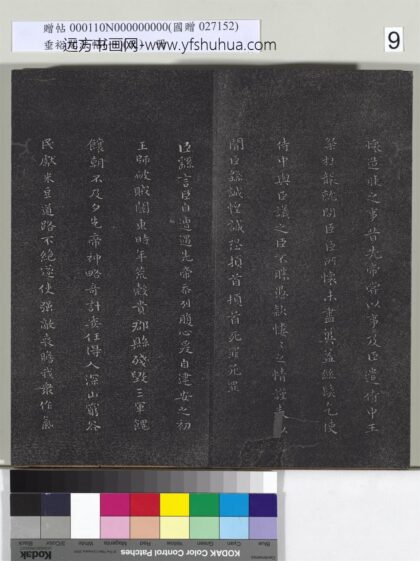 贈帖 000110N000000000(國贈 027152)
远方书画网-www.yfshuhua.com
9
懷造膝之事昔先帝常以事及臣遣侍中王
粲杜襲就問臣臣所懷未盡冀益絲髮乞使
侍中與臣議之臣不勝愚款慺慺之情謹表以
聞臣繇誠惶誠恐頓首頓首死罪死罪
臣繇言臣自遭遇先帝忝列腹心爰自建安之初
王師破賊關東時年荒穀貴郡縣殘毀三軍餽
饟朝不及夕先帝神略奇計委任得人深山窮谷
民獻米豆道路不絕遂使強敵喪膽我衆作氣
Kodak
KODAK Color Control Patches
Blue Cyan Green Yellow Red Magenta White 3/Color Black